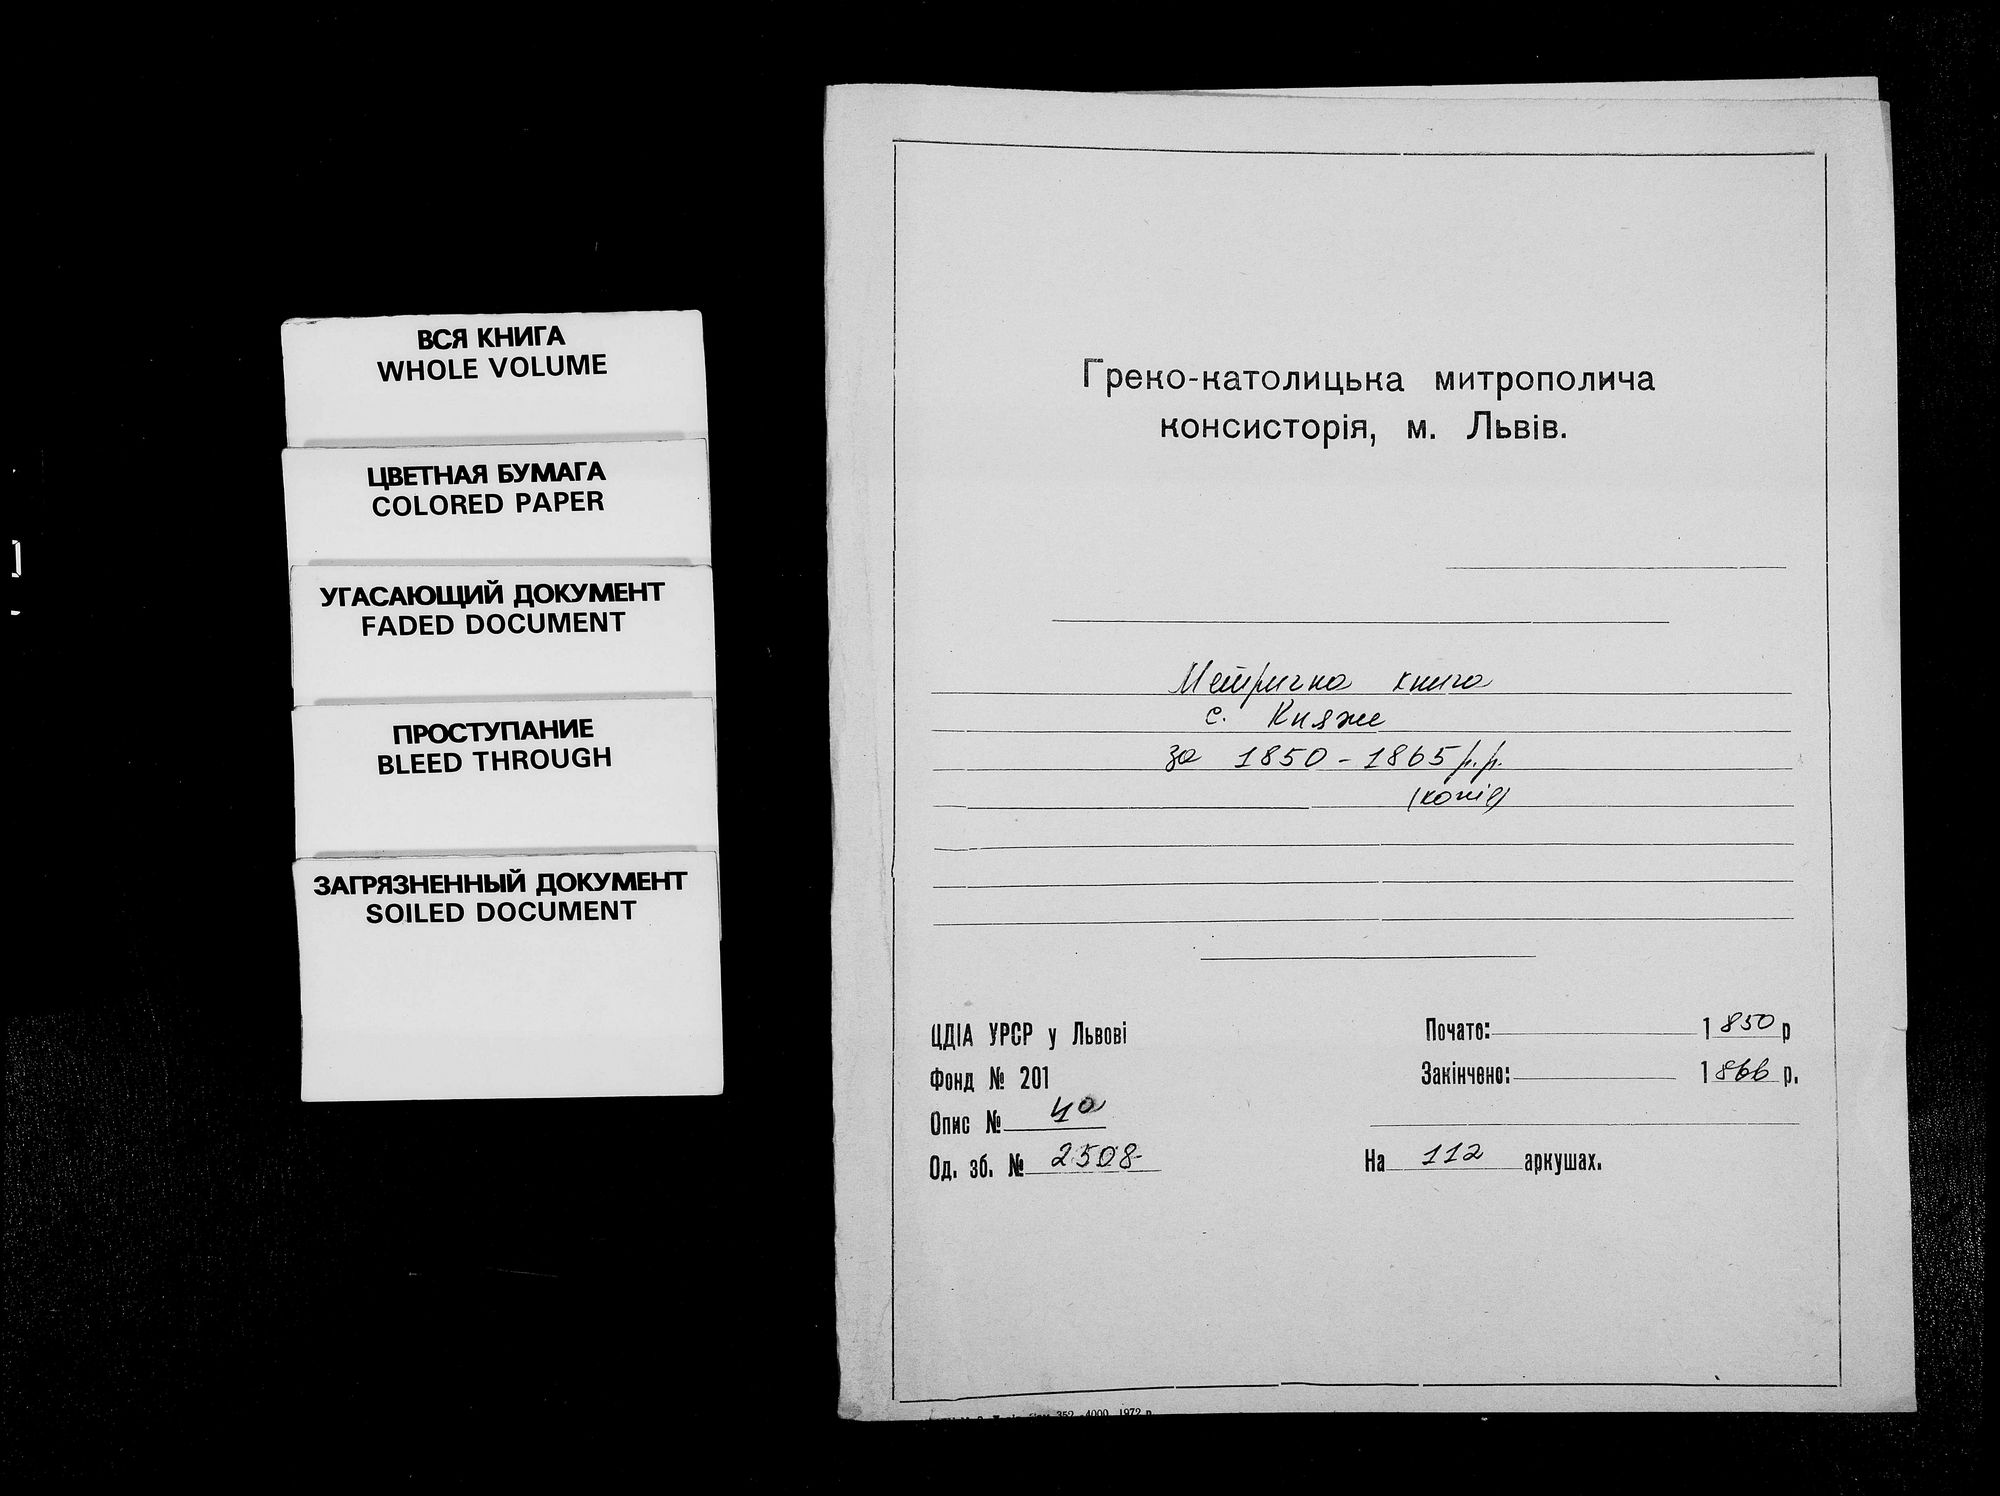 ВСЯ КНИГА
WHOLE VOLUME
ЦВЕТНАЯ БУМАГА
COLORED PAPER
УГАСАЮЩИЙ ДОКУМЕНТ
FADED DOCUMENT
ПРОСТУПАНИЕ
BLEED THROUGH
ЗАГРЯЗНЕННЫЙ ДОКУМЕНТ
SOILED DOCUMENT
Греко-католицька митрополича
консисторія, м. Львів.
Метрична книга
с. Княже
за 1850-1865 р.р.
(копія)
ЦДІА УРСР у Львові
Фонд № 201
Опис № 4а
Од. зб. № 2508
Почато: 1850 р
Закінчено: 1866 р.
На 112 аркушах.
352 -4000 1972 р.